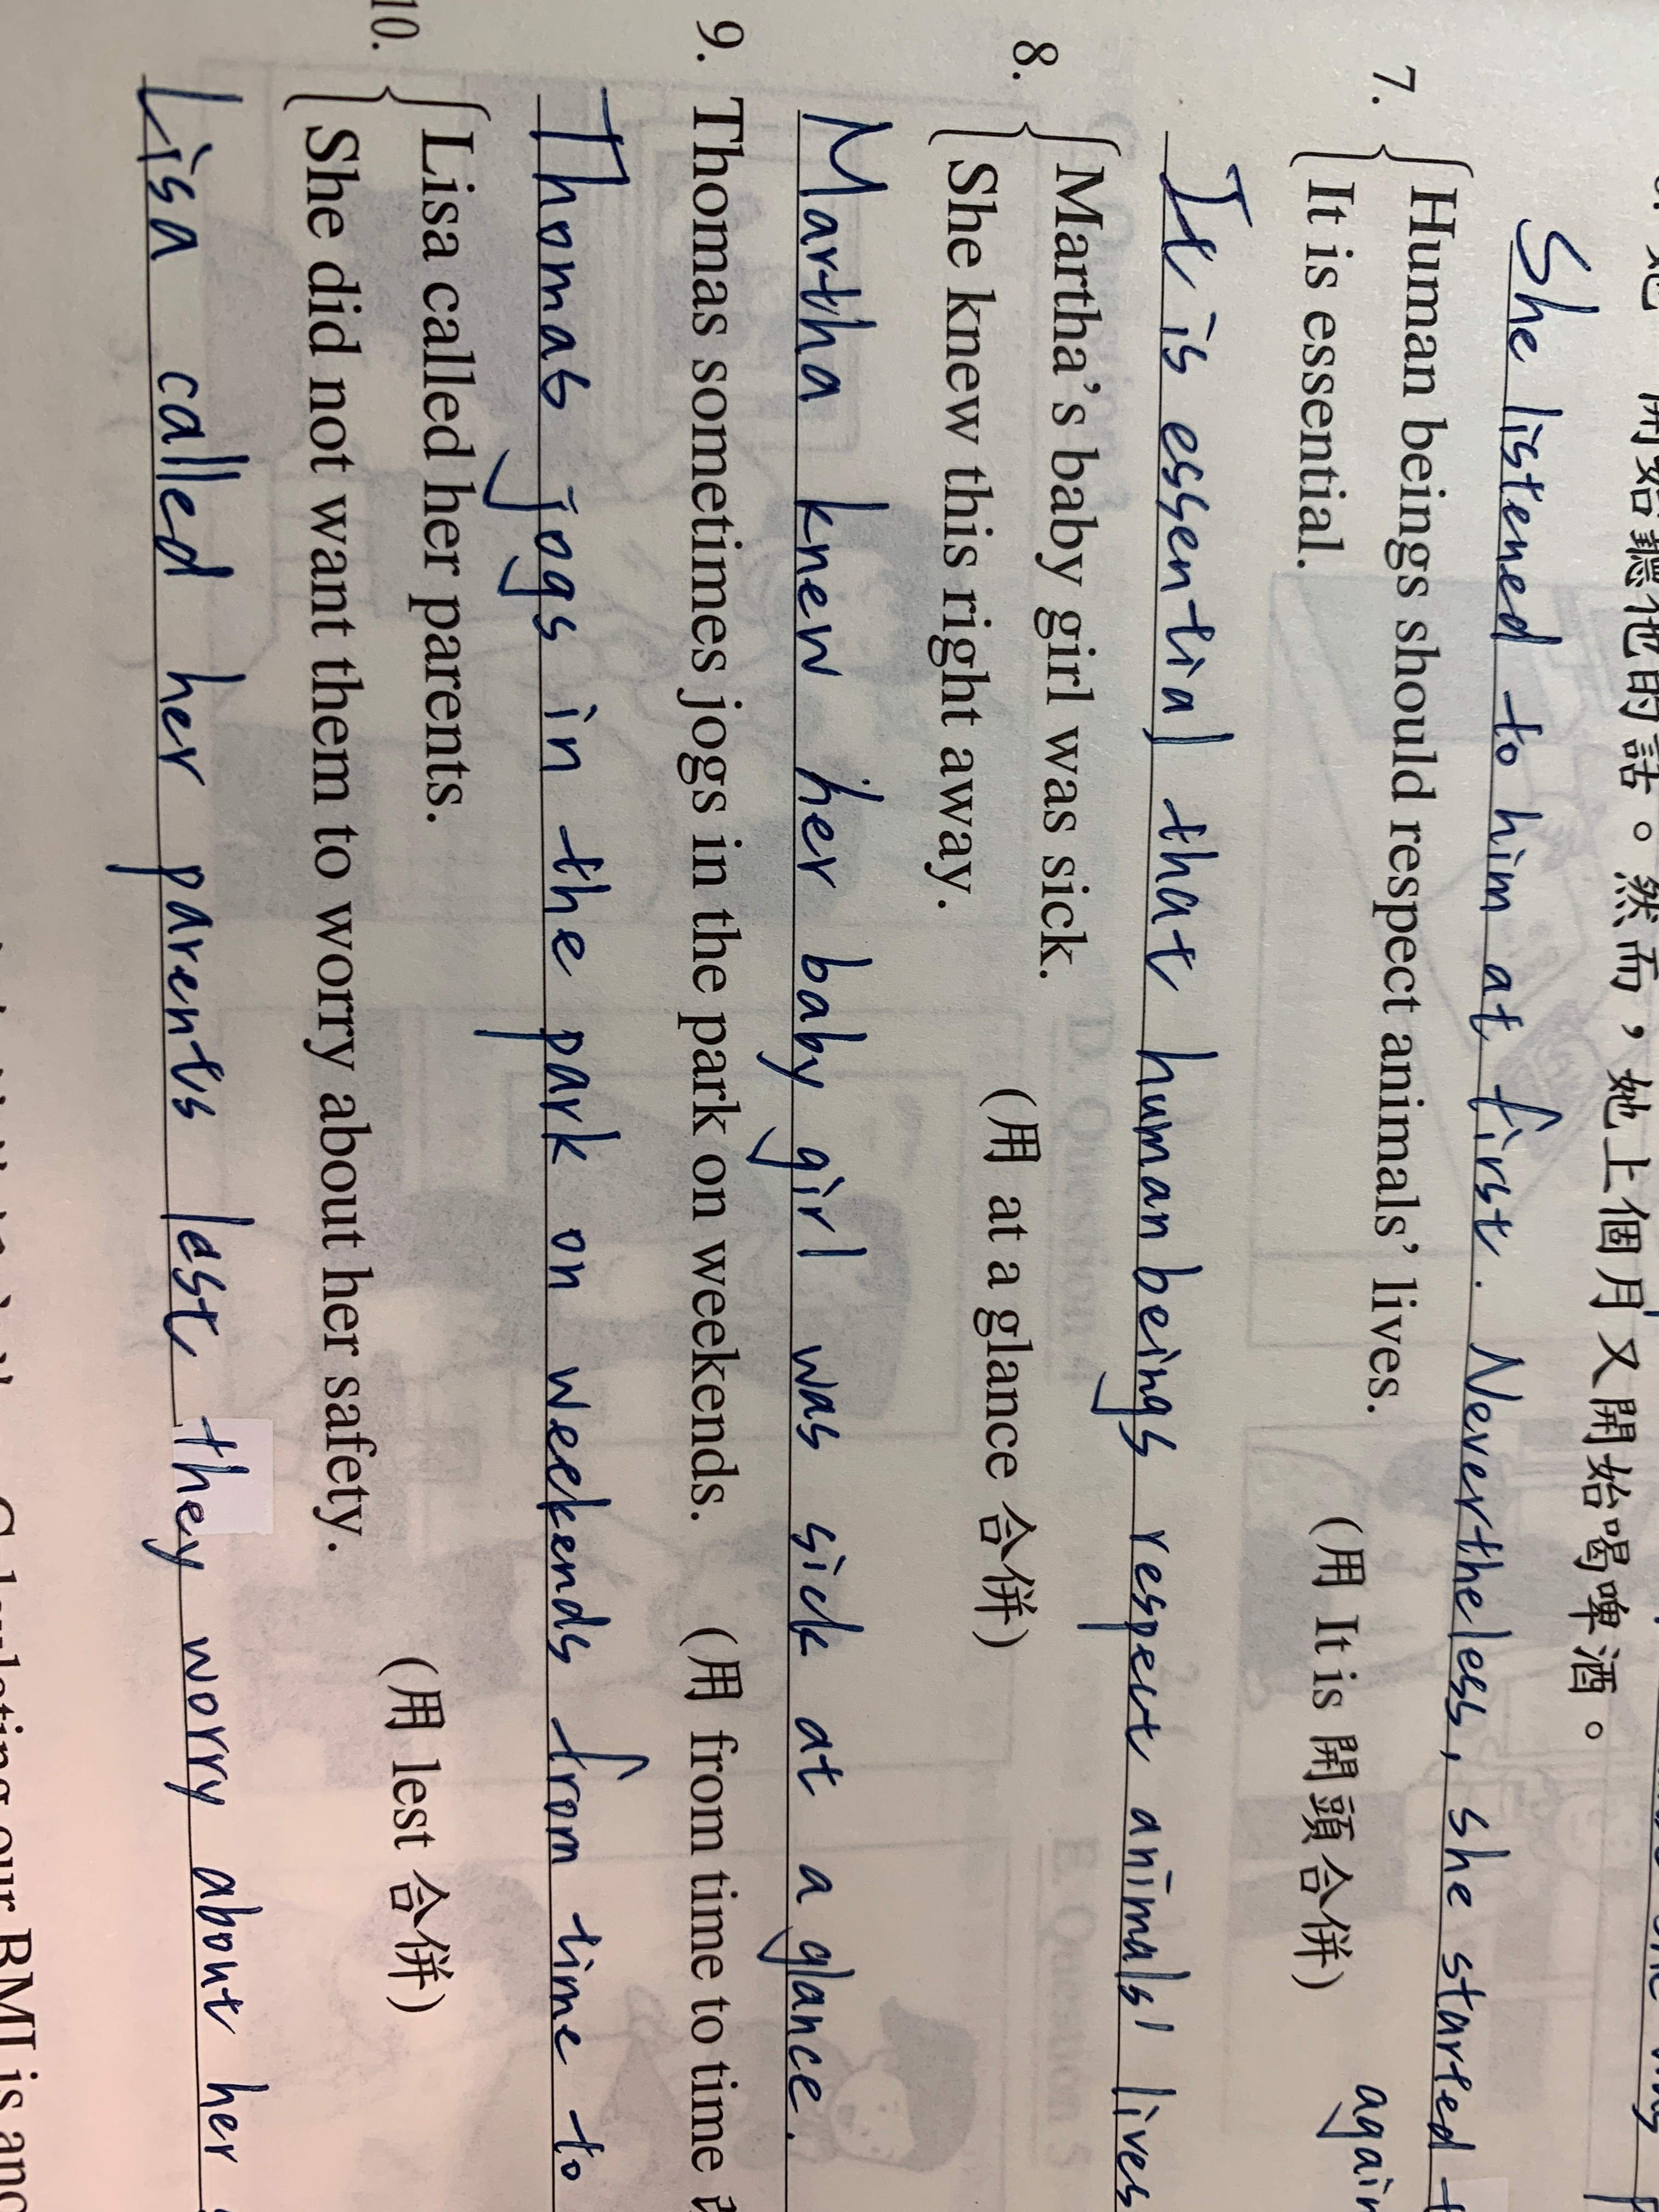 開始聽他的話。然而，她上個月又開始喝啤酒。
She listened to him at first. Nevertheless, she started
again
7. Human beings should respect animals' lives.
It is essential. (用 It is 開頭合併)
It is essential that human beings respect animals' lives
8. Martha's baby girl was sick.
She knew this right away. (用 at a glance 合併)
Martha knew her baby girl was sick at a glance.
9. Thomas sometimes jogs in the park on weekends. (用 from time to time
Thomas jogs in the park on weekends from time to
10. Lisa called her parents.
She did not want them to worry about her safety. (用 lest 合併)
Lisa called her parents lest they worry about her
our BMI is